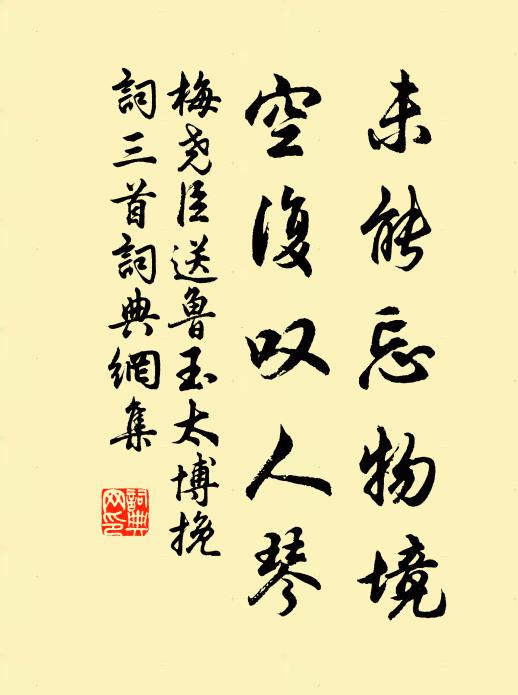 未能忘物境
空復叹人琴
梅尧臣送魯玉太博挽
詞三首詞典網集
詞典网印